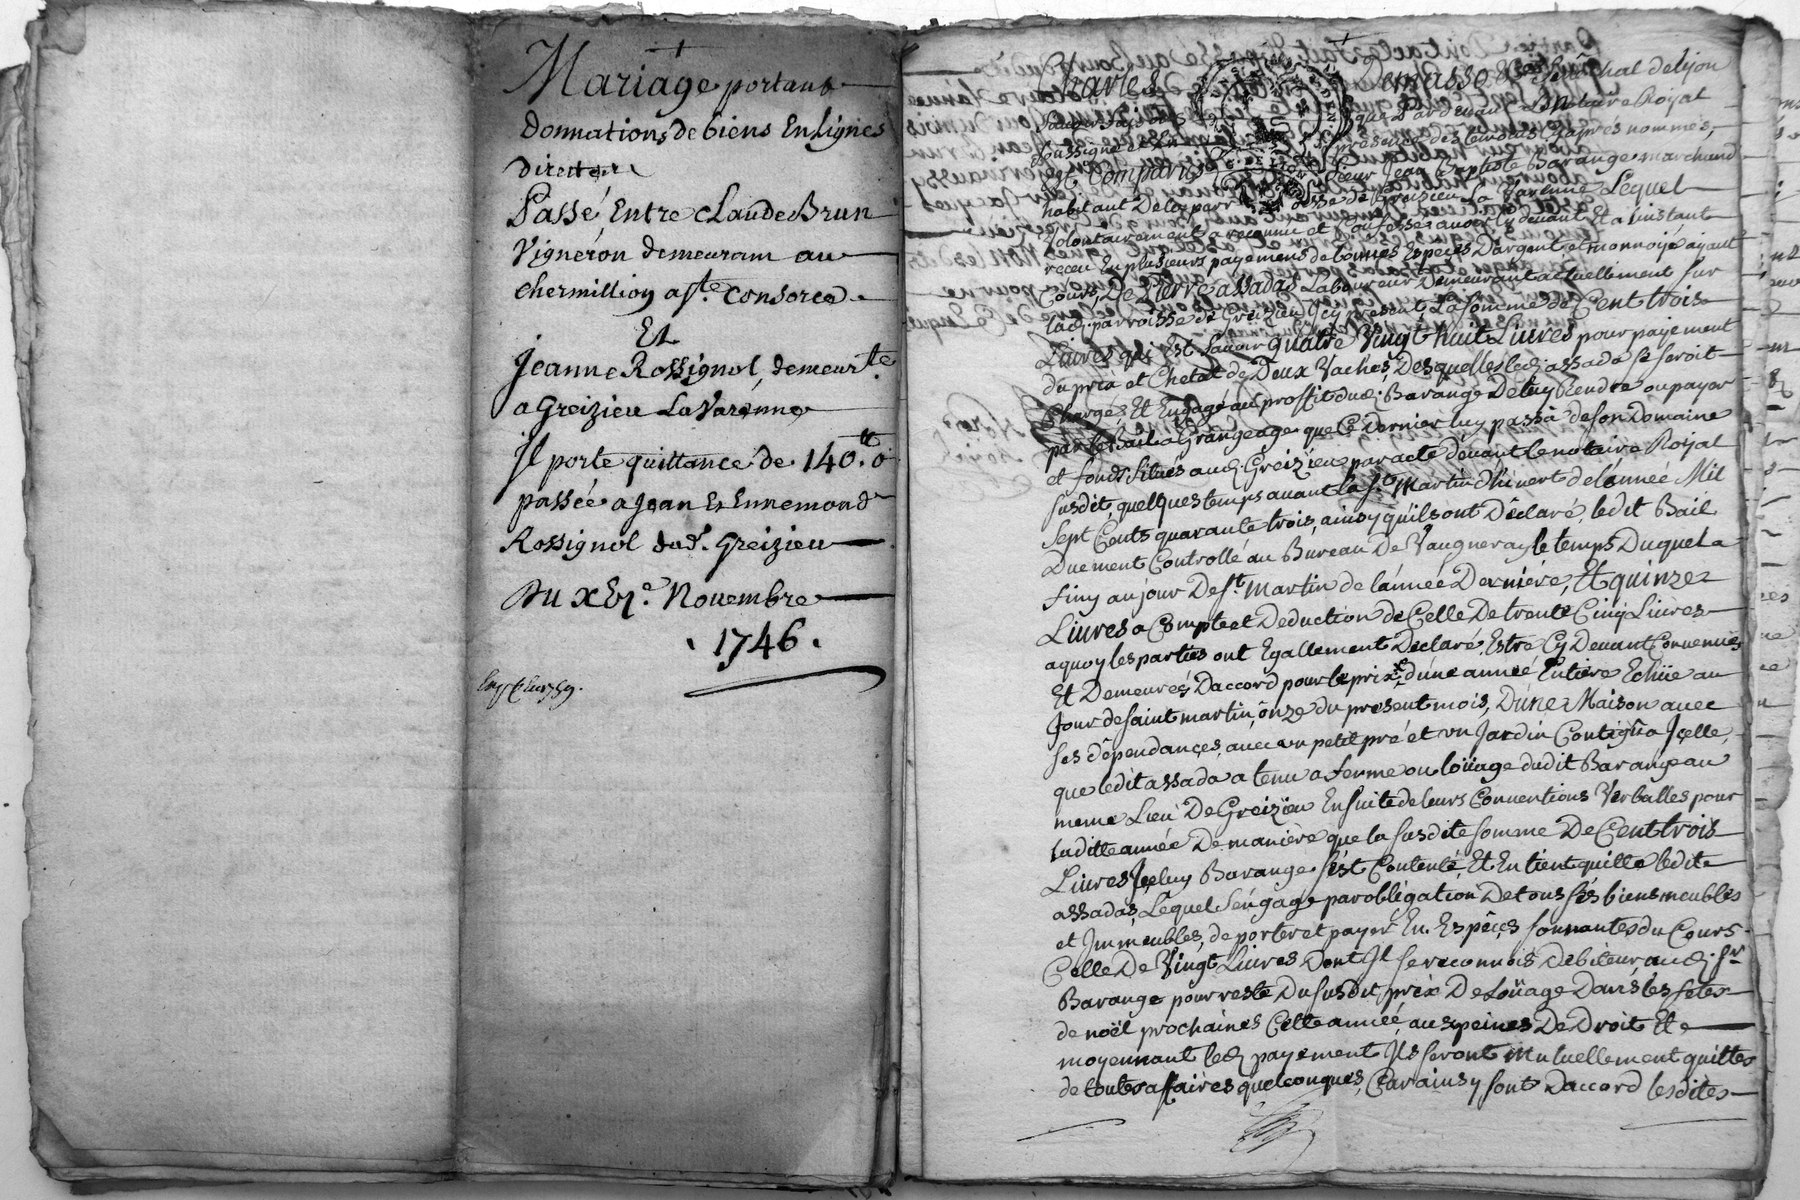 Mariage portant
donnations de biens En Lignes
directe
Passé Entre Claude Brun
Vigneron demeurant au
chermillion a ste. Consorce
Et
Jeanne Rossignol, demeurte
a Greizieu La Varenne
Il porte quittance de 140tt. 0
passée a Jean Et Ennemond
Rossignol dud. Greizieu
Du Novembre
1746.
Charles Demasso sénéchal de lyon
que Pardevant Notaire Royal
soussigné et En présence des temoins Cyaprés nommés,
Et Comparu Sieur Jean Baptiste Barange marchand
habitant De la parroisse de Greizieu La Varenne Lequel
volontairement a reconnu et Confessé avoir Cy devant Et a linstant
receu En plusieurs payemens de bonnes Espèces D'argent, et monnoye ayant
Cours, De Pierre assadas Laboureur Demeurant actuellement sur
lad. parroisse de Greizieu Icy présent, La somme de Cent trois
Livres qui Est savoir quatre Vingt huit Livres pour payement
du prix et Chetat de Deux Vaches, Desquelles led. assada se seroit
Chargé, Et Engagé au proffit dud. Barange De luy Rendre ou payer
par le Bail a Grangeage que Ce Dernier luy passa de son Domaine
et fonds situés aud. Greizieu par acte devant le notaire Royal
susdit, quelques temps avant la st Martin d'hivert de l'année Mil
sept Cents quarante trois, ainsy qu'ils ont Déclaré, ledit Bail
Duement Controllé au Bureau De Vaugneray le temps Duquel a
finy au jour De st. Martin de l'année Derniére, Et quinze
Livres a Compte et Deduction de Celle De trente Cinq Livres
a quoy les parties ont Egallement Declaré, Estre Cy Devant Convenues
Et Demeurés D'accord pour le prix d'une année Entiére Echüe au
Jour de saint martin, ônze du present mois, D'une Maison avec
ses dépendances, avec un petit pré et un Jardin Contigû a Jcelle,
que ledit assada a tenu a ferme ou loüage dudit Barange au
meme Lieu De Greizieu Ensuite de leurs Conventions Verballes pour
laditte année De maniére que la susdite somme De Cent trois
Livres Jceluy Barange s'est Contenté, Et En tient quitte ledit
assadas, Lequel s'engage par obligation De tous ses biens meubles
et Jmmeubles, de porter et payer En Espèces sonnantes du Cours
Celle De Vingt Livres Dont Jl se reconnois Debiteur aud. Sr
Barange pour reste Du susdit prix De Loüage Dans les fetes
de noël prochaines Cette année, aux peines De Droit Et
moyennant led. payement Jls seront Mutuellement quittes
de toutes affaires quelconques, Car ainsy sont D'accord lesdites